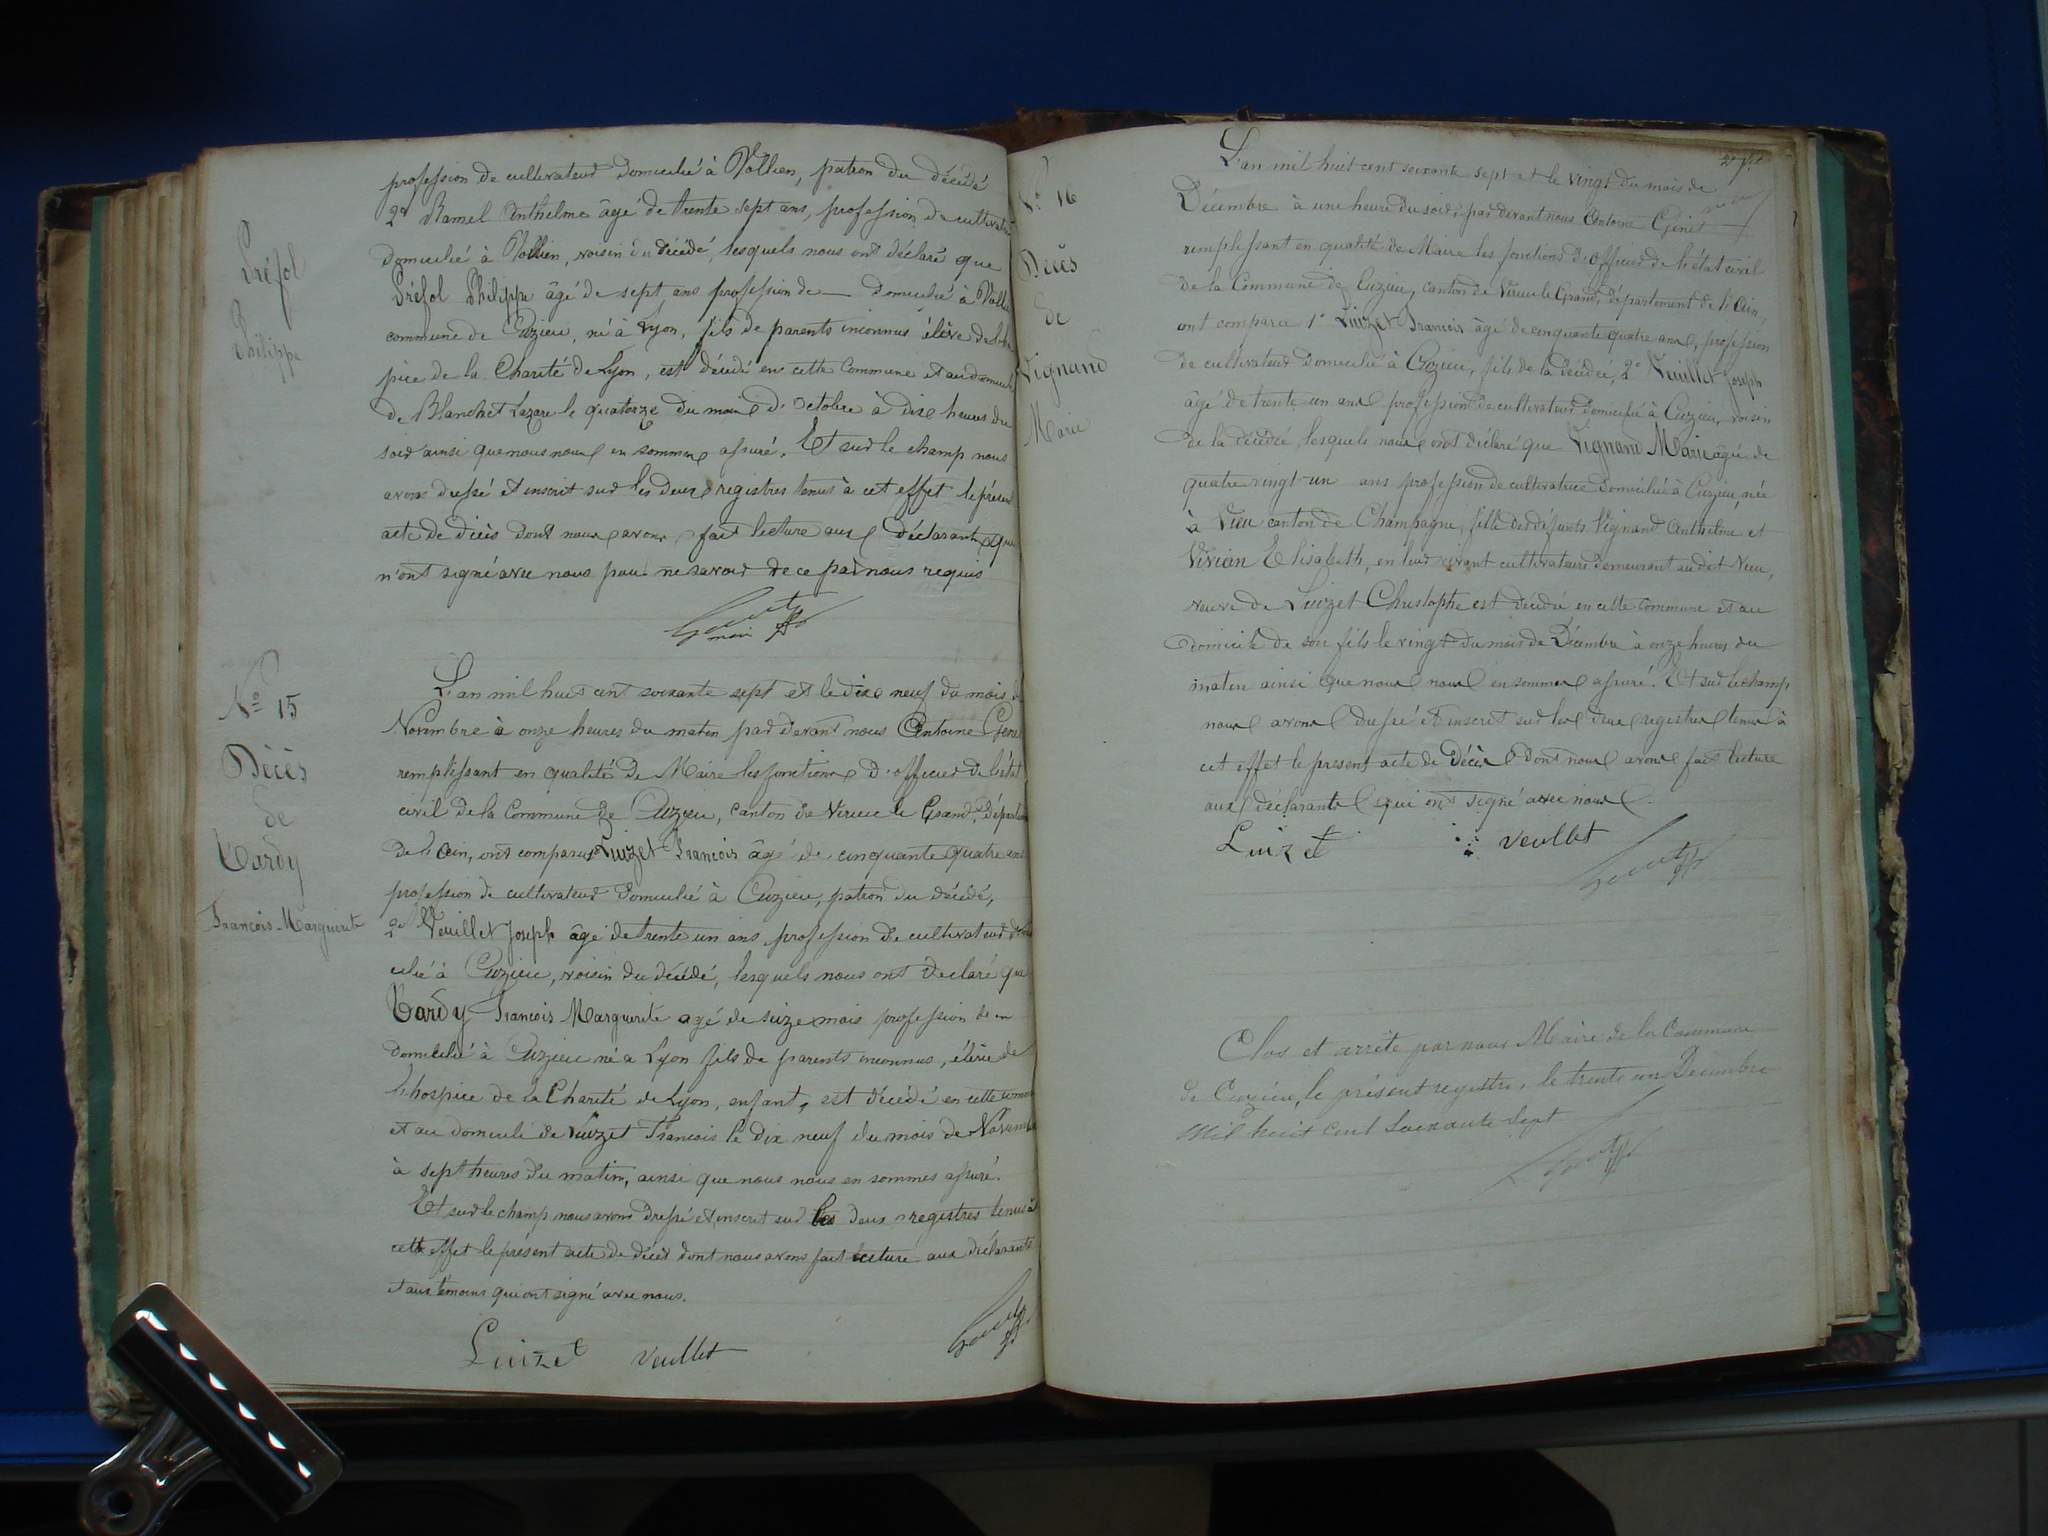 Préfol
Philippe
profession de cultivateur domicilié à Vollien, patron du décédé
2° Ramel Anthelme âgé de trente sept ans, profession de cultivateur
domicilié à Vollien, voisin du décédé, lesquels nous ont déclaré que
Préfol Philippe âgé de sept ans profession de — domicilié à Vollien
commune de Cuzieu, né à Lyon, fils de parents inconnus élève de l'hos
pice de la Charité de Lyon, est décédé en cette Commune et au domicile
de Blanchet Lazare le quatorze du mois d'Octobre à dix heures du
soir ainsi que nous nous en sommes assuré. Et sur le champ nous
avons dressé et inscrit sur les deux registres tenus à cet effet le présent
acte de décès dont nous avons fait lecture aux déclarants qui
n'ont signé avec nous pour ne savoir de ce par nous requis
N° 15
Décès
de
Tardy
François-Marguerite
L'an mil huit cent soixante sept et le dix neuf du mois de
Novembre à onze heures du matin par devant nous Antoine Genet
remplissant en qualité de Maire les fonctions d'officier de l'état
civil de la Commune de Cuzieu, canton de Virieu le Grand, départem
de l'Ain, ont comparus Luizet François âgé de cinquante quatre ans
profession de cultivateur domicilié à Cuzieu, patron du décédé,
2° Veuillet Joseph âgé de trente un ans profession de cultivateur domi
cilié à Cuzieu, voisin du décédé, lesquels nous ont déclaré que
Tardy François Marguerite agé de seize mois profession de —
domicilié à Cuzieu né à Lyon fils de parents inconnus, élève de
l'hospice de la Charité de Lyon, enfant, est décédé en cette commune
et au domicile de Luizet François le dix neuf du mois de Novembre
à sept heures du matin, ainsi que nous nous en sommes assuré.
Et sur le champ nous avons dressé et inscrit sur les deux registres tenus à
cett effet le présent acte de décès dont nous avons fait lecture aux déclarants
et aux témoins qui ont signé avec nous.
Luizet Veullet
N° 16
Décès
de
Vignand
Marie
L'an mil huit cent soixante sept et le vingt du mois de
Décembre à une heure du soir, par devant nous Antoine Genet
remplissant en qualité de Maire les fonctions d'officier de l'état civil
de la Commune de Cuzieu, canton de Virieu le Grand, département de l'Ain,
ont comparu 1° Luizet François âgé de cinquante quatre ans, profession
de cultivateur domicilié à Cuzieu, fils de la décédée, 2° Veuillet Joseph
âgé de trente un ans profession de cultivateur domicilié à Cuzieu, voisin
de la décédée lesquels nous ont déclaré que Vignand Marie agée de
quatre vingt-un ans profession de cultivatrice domiciliée à Cuzieu, née
à Vieu canton de Champagne, fille des défunts Vignand Anthelme et
Vivian Elisabeth, en leur vivant cultivateurs demeurant au dit Vieu,
veuve de Luizet Christophe est décédé en cette commune et au
domicile de son fils le vingt du mois de Décembre à onze heures du
matin ainsi que nous nous en sommes assuré. Et sur le champ
nous avons dressé et inscrit sur les deux registres tenus à
cet effet le présent acte de décès dont nous avons fait lecture
aux déclarants qui ont signé avec nous.
Luizet Veullet
Clos et arrêté par nous Maire de la Commune
de Cuzieu, le présent registre, le trente un Décembre
Mil huit cent soixante sept